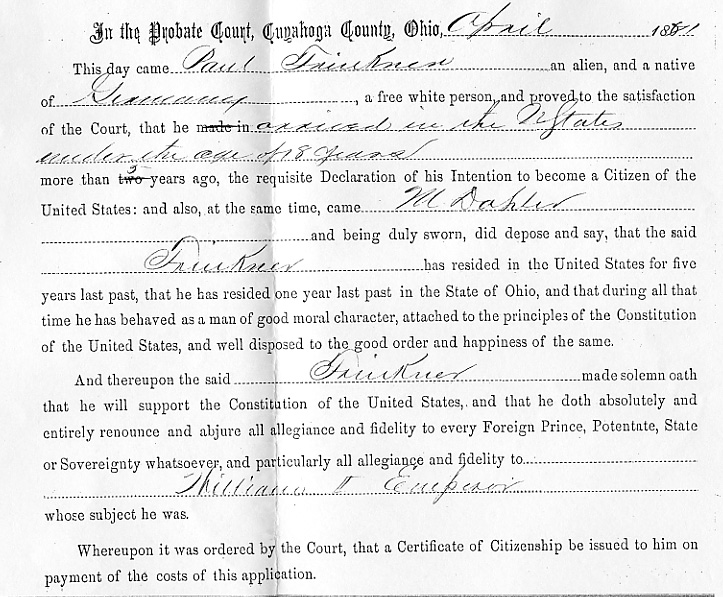 In the Probate Court, Cuyahoga County, Ohio, April 1881
This day came Paul Trinkner an alien, and a native
of Germany, a free white person, and proved to the satisfaction
of the Court, that he made in arrived in the U States
under the age of 18 years
more than two 3 years ago, the requisite Declaration of his Intention to become a Citizen of the
United States: and also, at the same time, came M Dahler
and being duly sworn, did depose and say, that the said
Trinkner has resided in the United States for five
years last past, that he has resided one year last past in the State of Ohio, and that during all that
time he has behaved as a man of good moral character, attached to the principles of the Constitution
of the United States, and well disposed to the good order and happiness of the same.
And thereupon the said Trinkner made solemn oath
that he will support the Constitution of the United States, and that he doth absolutely and
entirely renounce and abjure all allegiance and fidelity to every Foreign Prince, Potentate, State
or Sovereignty whatsoever, and particularly all allegiance and fidelity to
William Emperor
whose subject he was.
Whereupon it was ordered by the Court, that a Certificate of Citizenship be issued to him on
payment of the costs of this application.